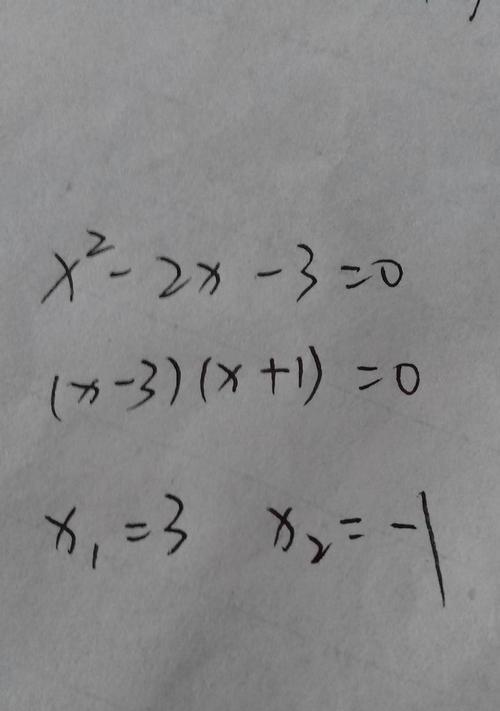 x² - 2x - 3 = 0
(x - 3)(x + 1) = 0
x₁ = 3 x₂ = -1